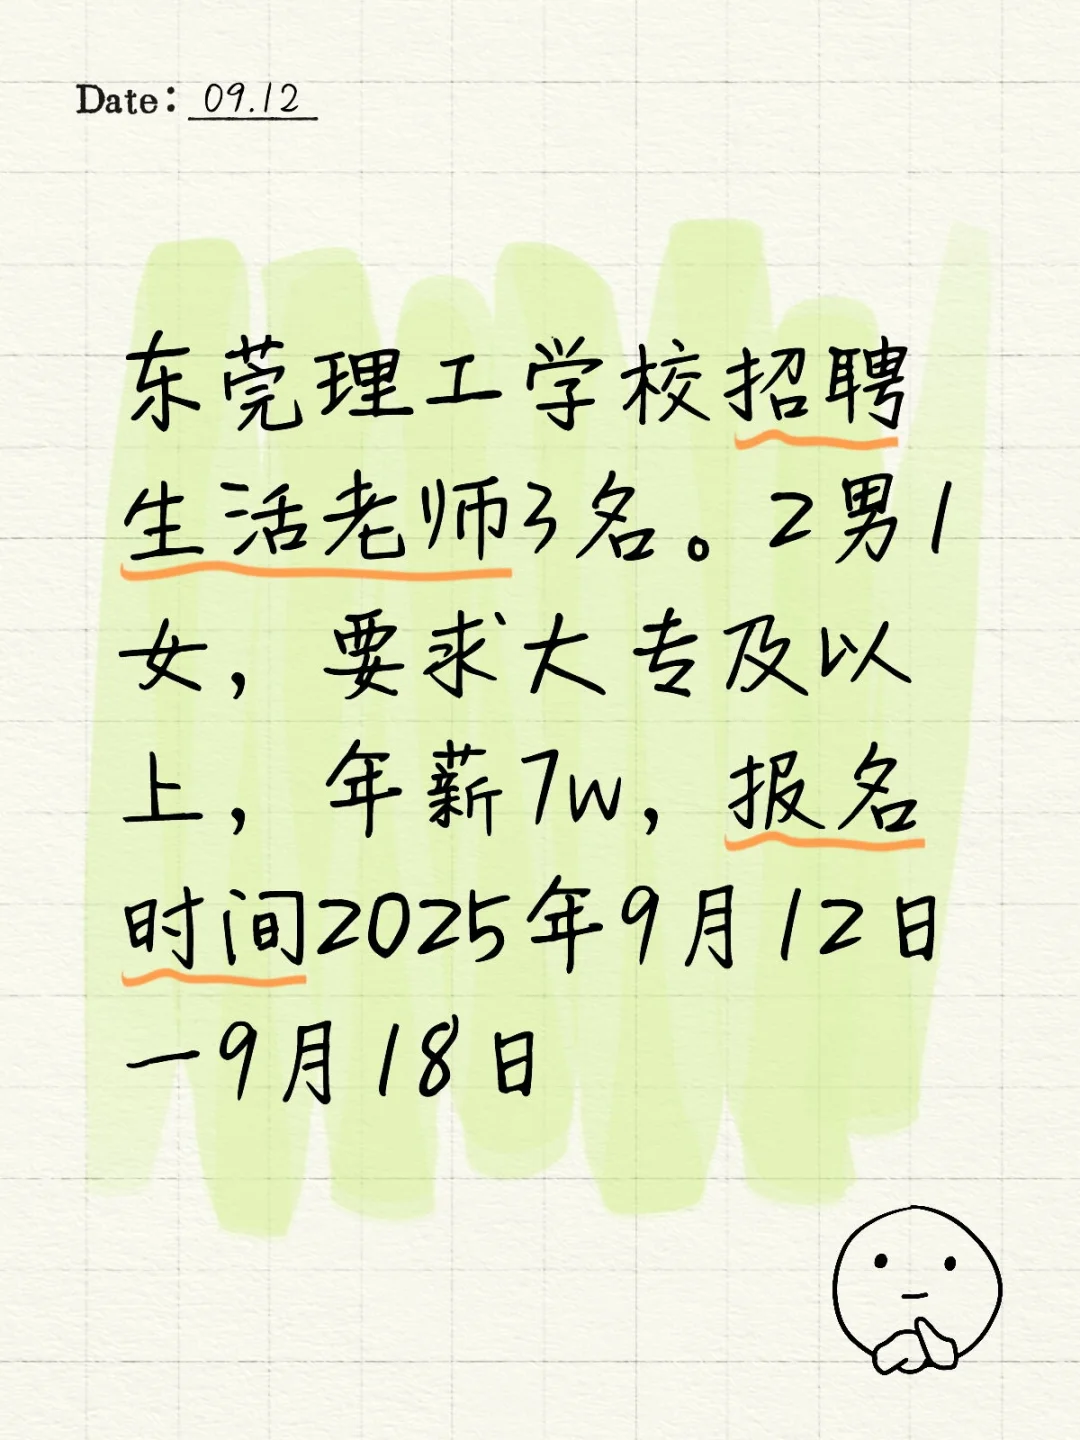 Date: 09.12
东莞理工学校招聘
生活老师3名。2男1
女，要求大专及以
上，年薪7w，报名
时间2025年9月12日
一9月18日